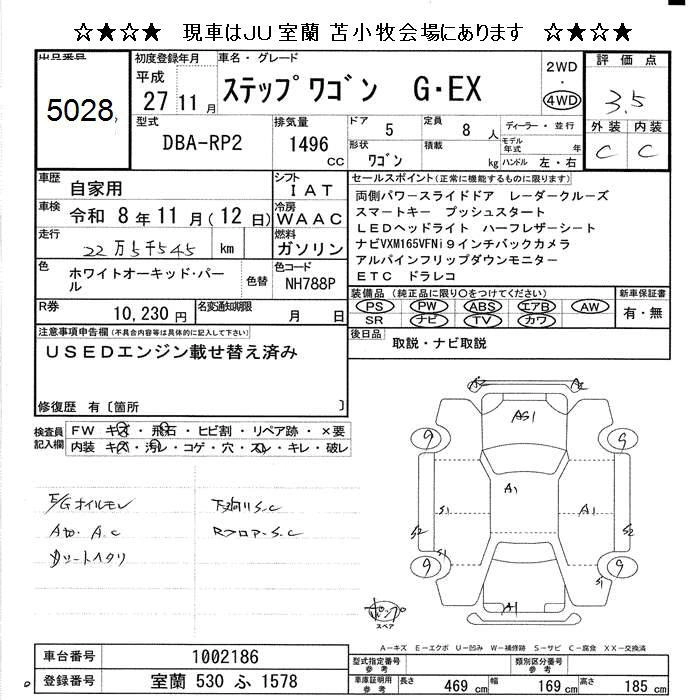 ☆★☆★ 現車はJU室蘭 苫小牧会場にあります ☆★☆★
出品番号
5028
初度登録年月
平成
27 11月
車名・グレード
ステップワゴン G・EX
2WD
・
4WD
評価点
3.5
外装 内装
C C
型式
DBA-RP2
排気量
1496 cc
ドア
5
定員
8 人
形状
ワゴン
積載
kg
ディーラー・並行
モデル年式 年
ハンドル 左・右
車歴
自家用
シフト
IAT
車検
令和 8年11月(12日)
冷房
WAAC
走行
22万5千545 km
燃料
ガソリン
色
ホワイトオーキッド・パール
色替
色コード
NH788P
R券
10,230円
名変通知期限
月 日
セールスポイント(正常に機能するものに限ります)
両側パワースライドドア レーダークルーズ
スマートキー プッシュスタート
LEDヘッドライト ハーフレザーシート
ナビVXM165VFNi9インチバックカメラ
アルパインフリップダウンモニター
ETC ドラレコ
装備品(純正品に限り○をつけてください)
PS PW ABS エアB AW
SR ナビ TV カワ
新車保証書
有・無
後日品
取説・ナビ取説
注意事項申告欄(不具合内容等は具体的に記入して下さい)
USEDエンジン載せ替え済み
修復歴 有〔箇所 〕
検査員記入欄
FW キズ・飛石・ヒビ割・リペア跡・×要
内装 キズ・汚レ・コゲ・穴・スレ・キレ・破レ
E/Gオイルモレ
下廻りS.C
Ato. A.C
RフロアーS.C
シートヘタリ
A2 A2
AS1
9 9
A1
S1 A1
S2 S2
S1
9 9
S1
A1
ポンプ
スペア
A-キズ E-エクボ U-凹み W-補修跡 S-サビ C-腐食 XX-交換済
車台番号
1002186
登録番号
室蘭 530 ふ 1578
型式指定番号
参考
類別区分番号
参考
車庫証明用
参考
長さ 469 cm
幅 169 cm
高さ 185 cm